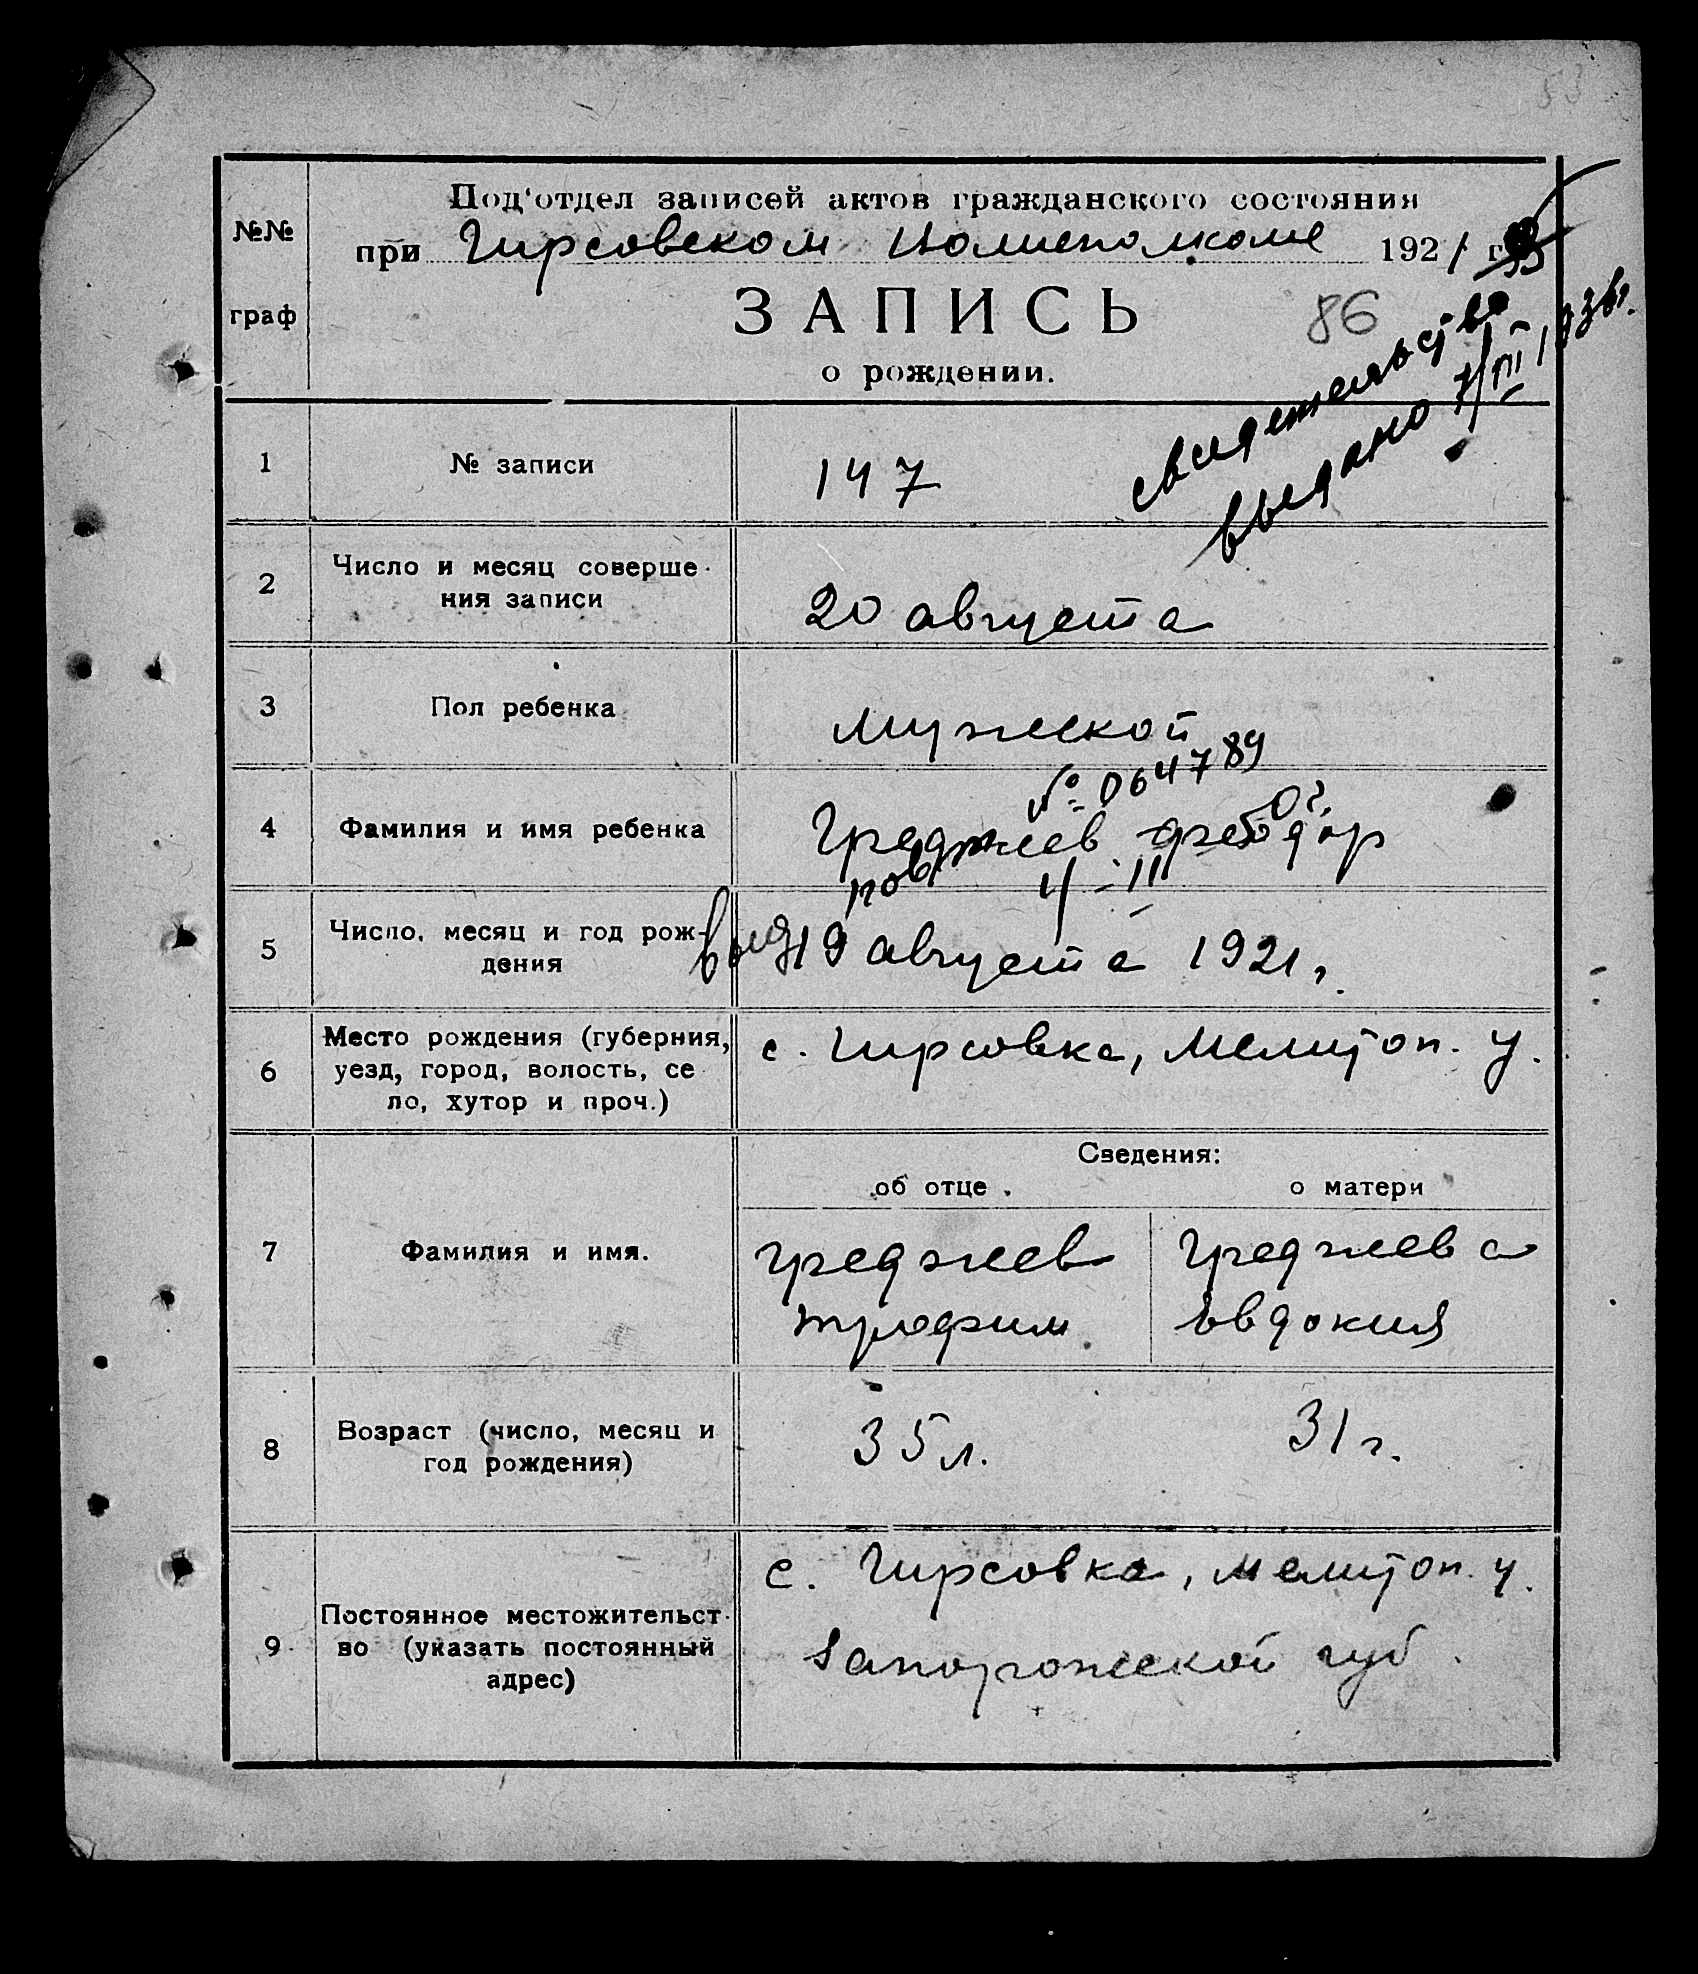 53
№№
граф
Под'отдел записей актов гражданского состояния
при Гирсовском волисполкоме 1921 г.
ЗАПИСЬ
86
о рождении.
свидетельство
выдано
1 № записи 147
2 Число и месяц соверше-
ния записи 20 августа
3 Пол ребенка мужской
№ 064789
4 Фамилия и имя ребенка Греджев Феодор
повт 4-III
выд
5 Число, месяц и год рож-
дения 19 августа 1921 г.
6 Место рождения (губерния,
уезд, город, волость, се
ло, хутор и проч.) с. Гирсовка, Мелитоп. у.
Сведения:
об отце о матери
7 Фамилия и имя. Греджев Греджева
Трофим Евдокия
8 Возраст (число, месяц и
год рождения) 35 л. 31 г.
9 Постоянное местожительст-
во (указать постоянный
адрес) с. Гирсовка, Мелитоп. у.
Запорожской губ.